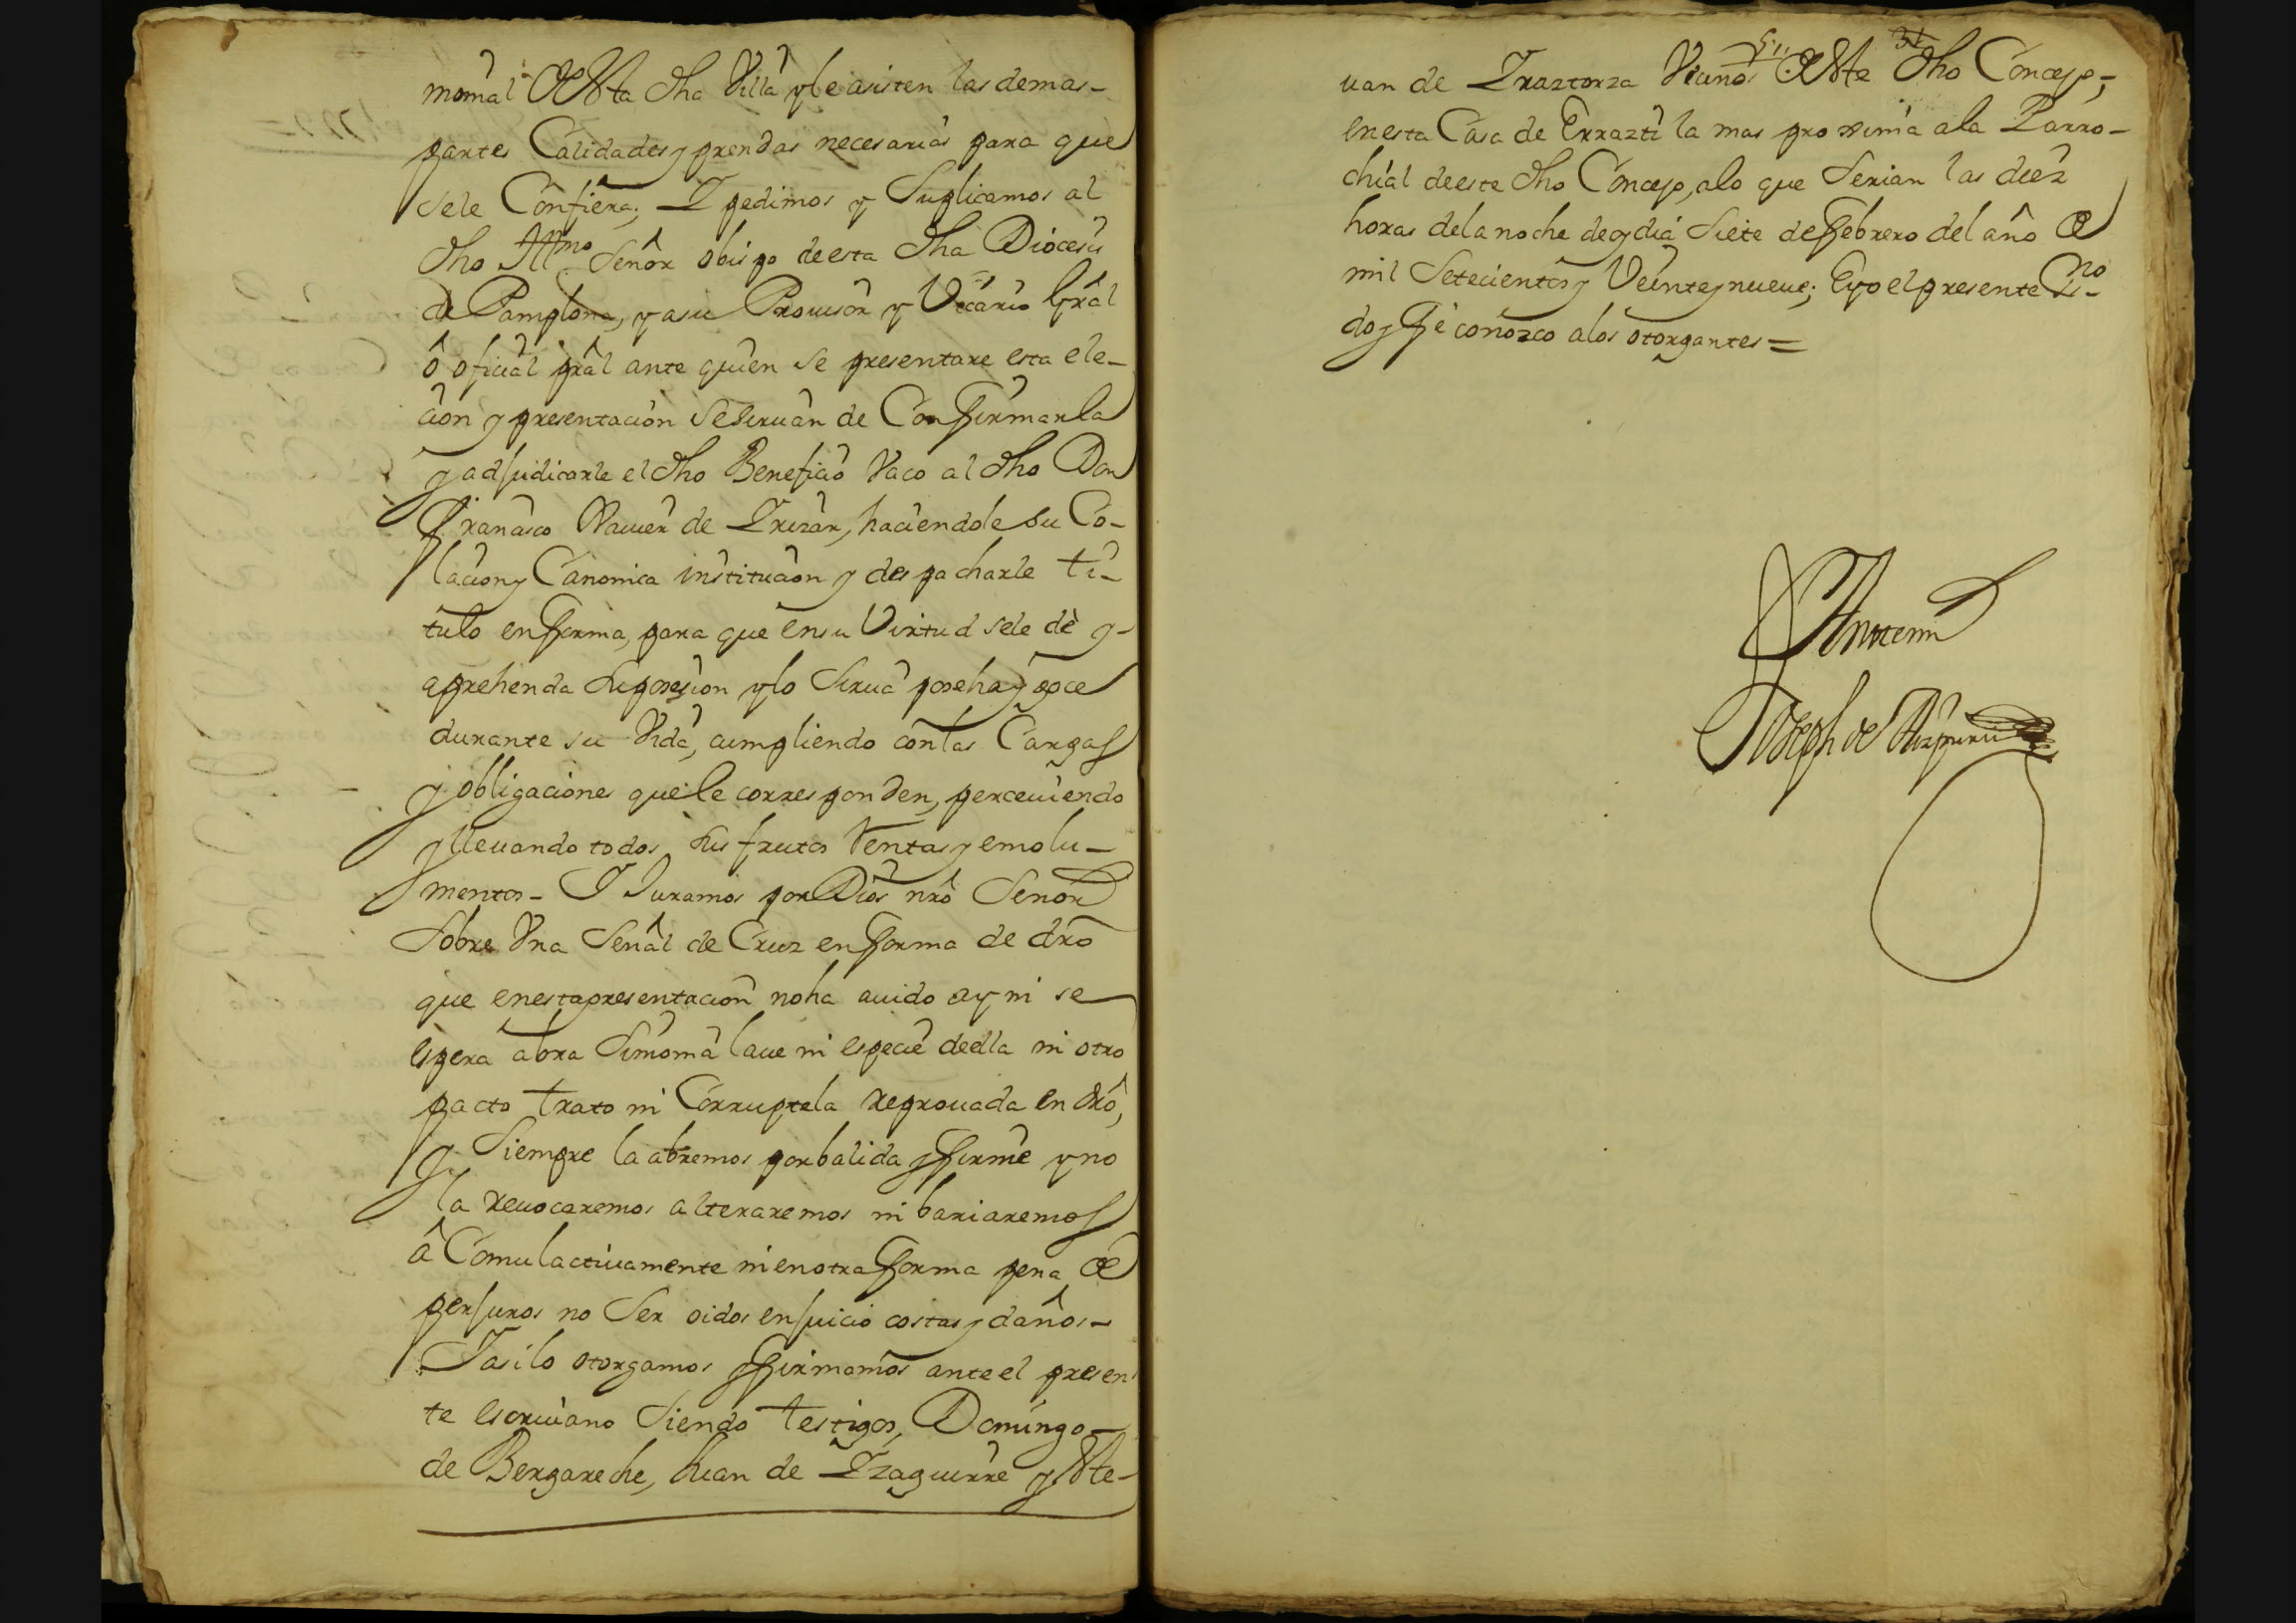 monial de esta dha Villa y le asisten las demas-
partes Calidades y prendas necesarias para que
se le Confiera; Y pedimos y Suplicamos al
dho Illmo Señor obispo de esta dha Diocesis
de Pamplona, y a su Provisor y Vicario Gral
ô oficial pral ante quien se presentare esta ele-
cion y presentacion se sirvan de Confirmarla
y adjudicarle el dho Beneficio Vaco al dho Don
Francisco Xavier de Yrizar, haciendole su Co-
lacion y Canonica institucion y despacharle ti-
tulo en forma, para que en su Virtud se le dè y-
aprehenda su posesion y lo Sirva poseha y goce
durante su Vida, cumpliendo con las Cargas
y obligaciones que le corresponden, perceviendo
y llevando todos sus frutos Rentas y emolu-
mentos - Y Juramos por Dios nrô Señor
Sobre Una Señal de Cruz en forma de drô
que en esta presentacion no ha avido ay ni se
espera abra Simonia lave ni especie de ella ni otro
pacto trato ni Corruptela reprovada en drô,
y Siempre la abremos por balida y firme y no
la revocaremos alteraremos ni bariaremos
â Comulactivamente ni en otra forma pena de
perjuros no Ser oidos en juicio costas y daños-
Y asi lo otorgamos y firmamos ante el presen
te escrivano Siendo testigos, Domingo-
de Bergareche, Juan de Yzaguirre y Este-
51. 31
van de Yraztorza Vecinos de este dho Concejo;
en esta Casa de Errazti la mas proxima a la Parro-
chial de este dho Concejo, a lo que Serian las diez
horas de la noche de oy dia Siete de febrero del año de
mil Setecientos y Veinte y nueve; E yo el presente Sno
doy fe conozco a los otorgantes =
Ante mi
Joseph de Aizpuru